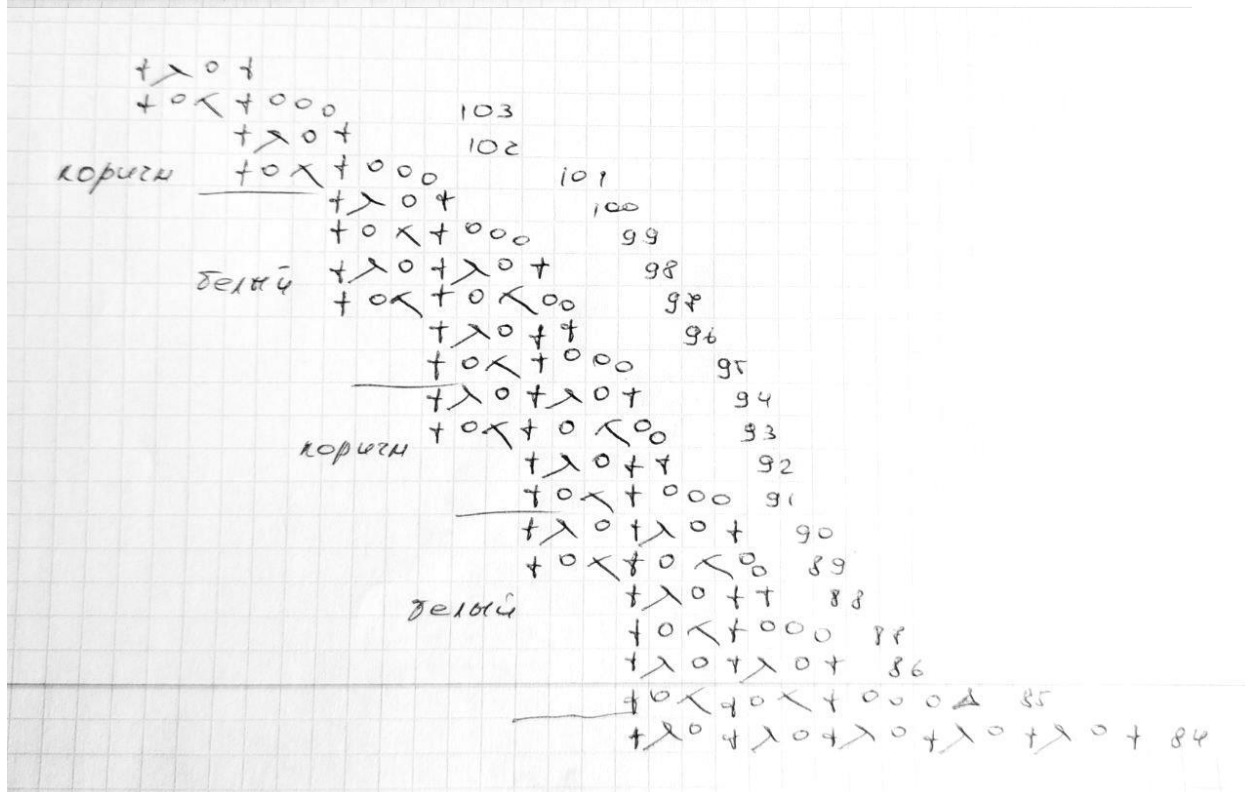 + λ o +
+ o ⋌ + o o o 103
+ λ o + 102
коричн + o ⋌ + o o o 101
+ λ o + 100
+ o ⋌ + o o o 99
белый + λ o + λ o + 98
+ o ⋌ + o ⋌ o o 97
+ λ o + + 96
+ o ⋌ + o o o 95
+ λ o + λ o + 94
коричн + o ⋌ + o ⋌ o o 93
+ λ o + + 92
+ o ⋌ + o o o 91
+ λ o + λ o + 90
+ o ⋌ + o ⋌ o o 89
белый + λ o + + 88
+ o ⋌ + o o o 87
+ λ o + λ o + 86
+ o ⋌ + o ⋌ + o o o 85
+ λ o + λ o + λ o + λ o + λ o + 84